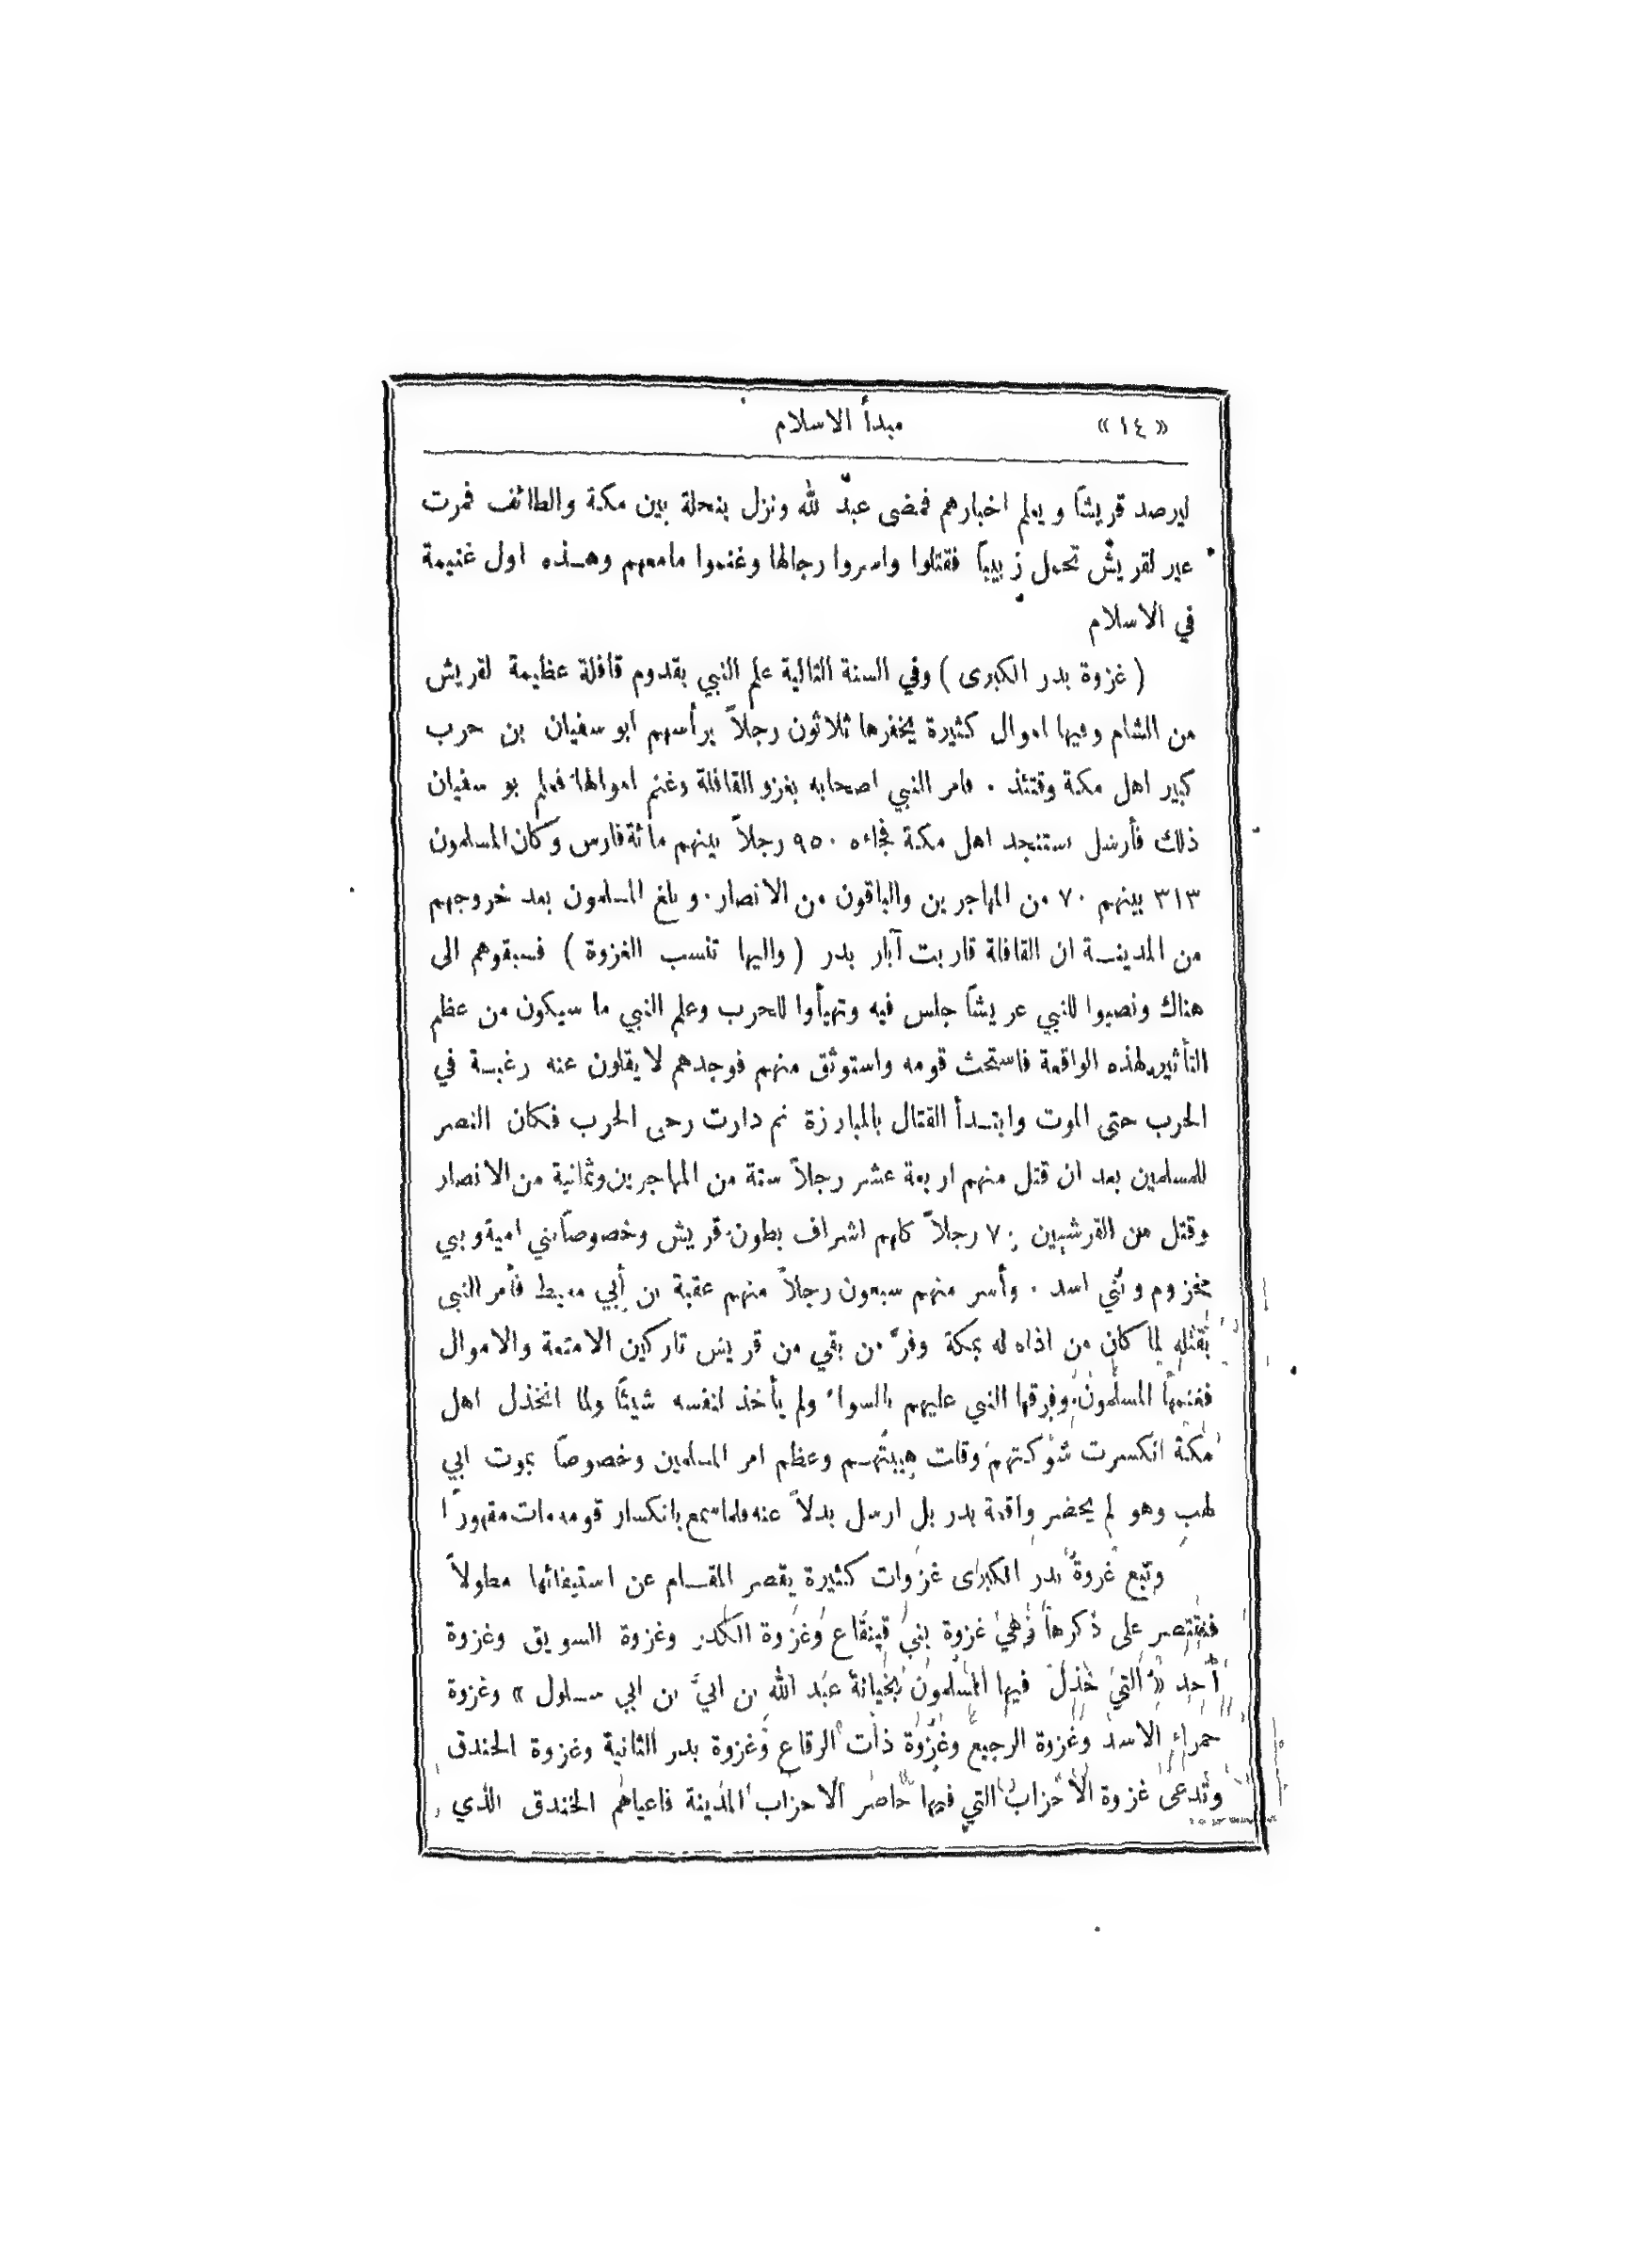 «١٤» مبدأ الاسلام
ليرصد قريشاً ويعلم اخبارهم فمضى عبد لله ونزل بنحلة بين مكة والطائف فمرت
عير لقريش تحمل زبيباً فقتلوا واسروا رجالها وغنموا مامعهم وهـذه اول غنيمة
في الاسلام
(غزوة بدر الكبرى) وفي السنة التالية علم النبي بقدوم قافلة عظيمة لقريش
من الشام وفيها اموال كثيرة يخفرها ثلاثون رجلاً يرأسهم ابو سفيان بن حرب
كبير اهل مكة وقتئذ . فامر النبي اصحابه بغزو القافلة وغنم اموالها فعلم بو سفيان
ذلك فأرسل استنجد اهل مكة فجاءه ٩٥٠ رجلاً بينهم مائة فارس وكان المسلمون
٣١٣ بينهم ٧٠ من المهاجرين والباقون من الانصار . وبلغ المسلمون بعد خروجهم
من المدينـة ان القافلة قاربت آبار بدر (واليها تنسب الغزوة) فسبقوهم الى
هناك ونصبوا للنبي عريشاً جلس فيه وتهيأوا للحرب وعلم النبي ما سيكون من عظم
التأثير لهذه الواقعة فاستحث قومه واستوثق منهم فوجدهم لا يقلون عنه رغبـة في
الحرب حتى الموت وابتـدأ القتال بالمبارزة ثم دارت رحى الحرب فكان النصر
للمسلمين بعد ان قتل منهم اربعة عشر رجلاً ستة من المهاجرين وثمانية من الانصار
وقتل من القرشيين ٧٠ رجلاً كلهم اشراف بطون قريش وخصوصاً بني امية وبني
مخزوم وبني اسد . وأسر منهم سبعون رجلاً منهم عقبة بن أبي معيط فأمر النبي
بقتله لما كان من اذاه له بمكة وفرّ من بقي من قريش تاركين الامتعة والاموال
فغنمها المسلمون وفرقها النبي عليهم بالسواء ولم يأخذ لنفسه شيئاً ولما انخذل اهل
مكة انكسرت شوكتهم وقلت هيبتهـم وعظم امر المسلمين وخصوصاً بموت ابي
لهب وهو لم يحضر واقعة بدر بل ارسل بدلاً عنه فلما سمع بانكسار قومه مات مقهوراً
وتبع غزوة بدر الكبرى غزوات كثيرة يقصر المقـام عن استيفائها مطولاً
فنقتصر على ذكرها وهي غزوة بني قينقاع وغزوة الكدر وغزوة السويق وغزوة
أُحد «التي خذل فيها المسلمون بخيانة عبد الله بن ابيّ بن ابي سلول» وغزوة
حمراء الاسد وغزوة الرجيع وغزوة ذات الرقاع وغزوة بدر الثانية وغزوة الخندق
وتدعى غزوة الاحزاب التي فيها حاصر الاحزاب المدينة فاعياهم الخندق الذي